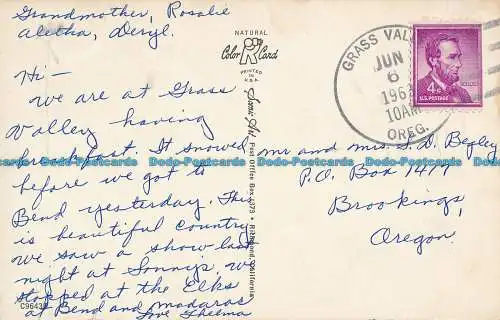 Grandmother, Rosalie
Aletha, Deryl.
Hi -
We are at Grass
Valley having
breakfast. It snowed
before we got to
Bend yesterday. This
is beautiful country
we saw a show last
night at Sonnys. we
stopped at the Elks
at Bend and madaras
Love Thelma
C9643
NATURAL
Color Card
PRINTED IN
U.S.A.
Post Office Box 4373
California
GRASS VAL
JUN
6
1961
10AM
OREG.
4¢
U.S. POSTAGE
mr and mrs. I. D. Begley
P.O. Box 1477
Brookings,
Oregon.
Dodo-Postcards Dodo-Postcards Dodo-Postcards Dodo-Postcards